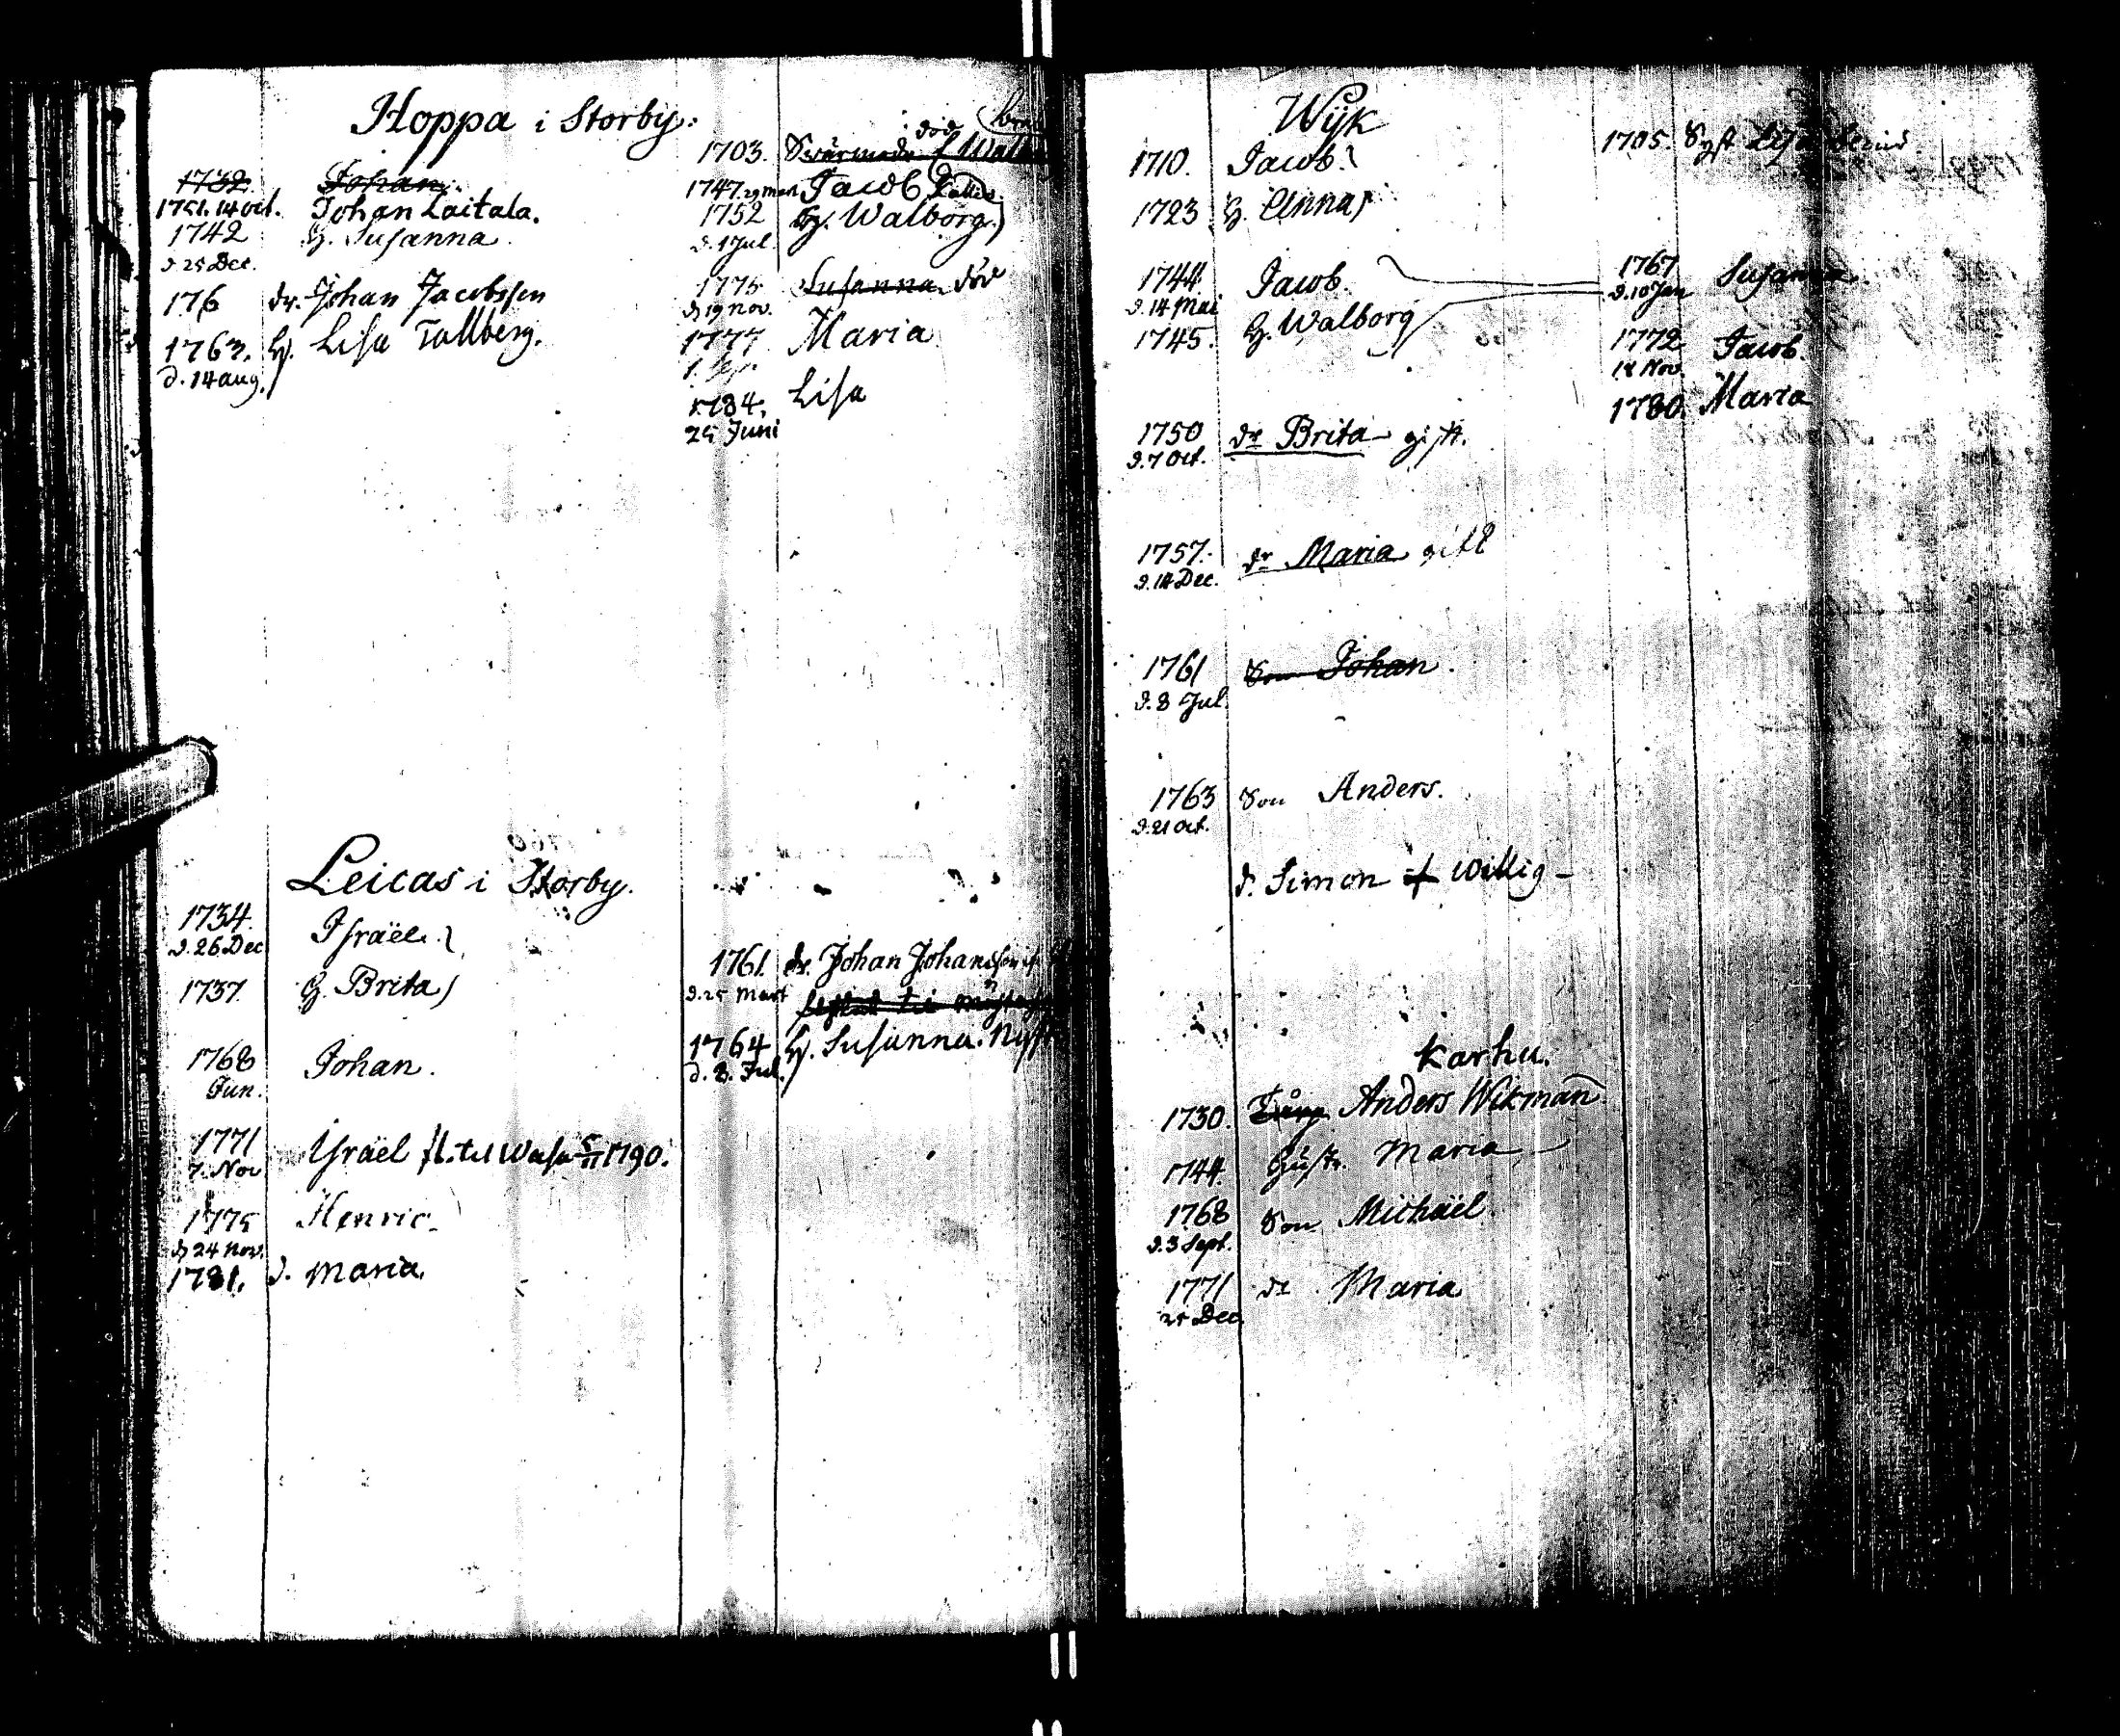 Hoppa i Storby.
1732 Johan
1751. 14 oct. Johan Laitala.
1742 H. Susanna
d. 25 Dec.
176 dr. Johan Jacobsson
1763. H. Lisa Tallberg.
d. 14 aug.
död
1703. Svärmodr
1747. 29 mart Jacob
1752 H. Walborg
d. 1 Jul.
1775 Susanna död
d 19 nov.
1777 Maria
1784. Lisa
25 Juni
Leicas i Storby.
1734 Israël
d. 26 Dec
1737 H. Brita
1768 Johan.
Jun.
1771 Israël fl. til Wasa 5/11 1790.
7. Nov
1775 Henric
d 24 Nov.
1781. d. Maria.
1761. dr. Johan Johansson
d. 25 Mart
1764 H. Susanna.
d. 8. Jul.
Wijk
1710. Jacob.
1723 H. Anna
1744. Jacob.
d. 14 Mai
1745. H. Walborg
1750 dr Brita gift.
d. 7 Oct.
1757. dr Maria gift
d. 14 Dec.
1761 Son Johan.
d. 8 Jul
1763 Son Anders.
d. 21 Oct.
d. Simon Willig
1705. Syst
1767 Susanna
d. 10 Jan
1772 Jacob.
18 Nov.
1780. Maria
Karhu.
1730. Anders Wikman
1744. Hustr. Maria
1768 Son Michaël.
d. 3 Sept.
1771 dr Maria
25 Dec